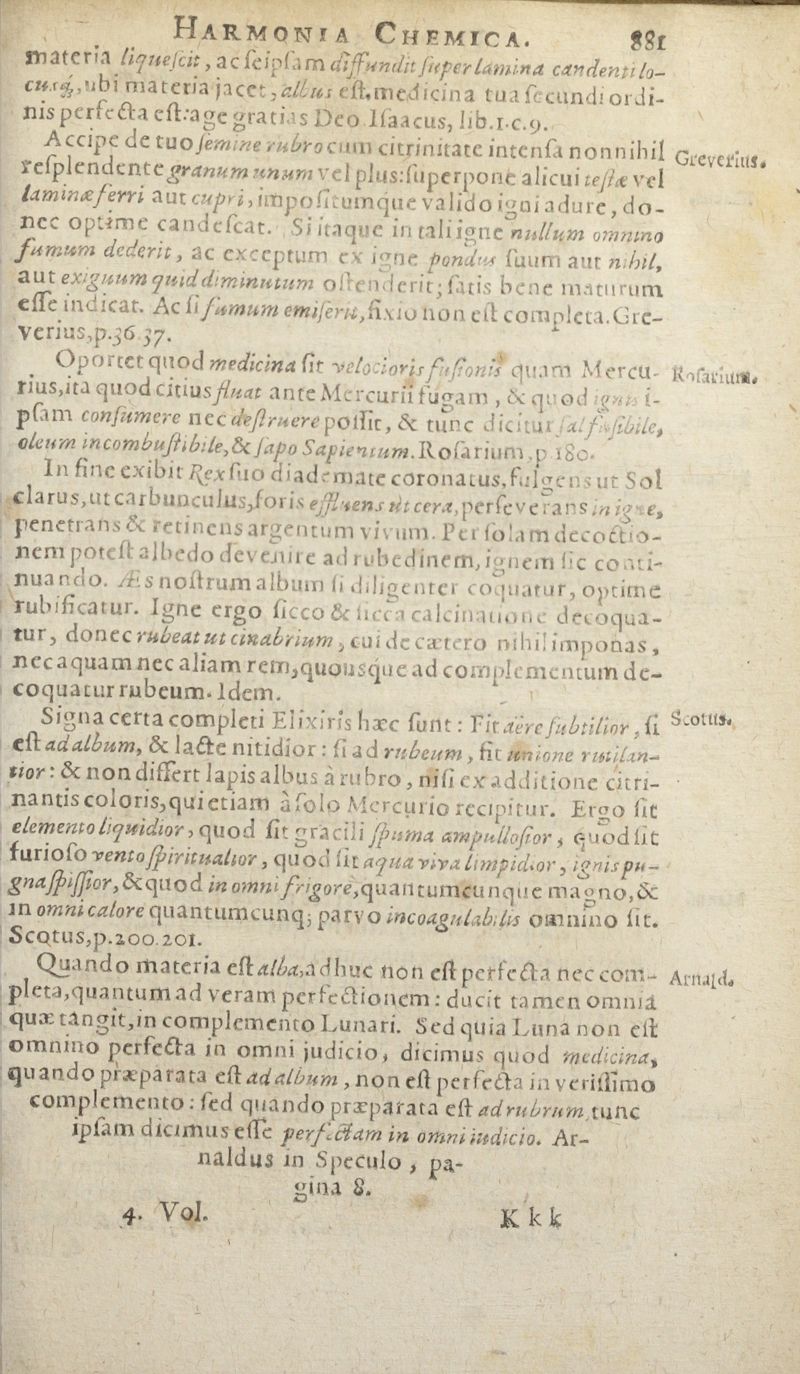 HARMONIA CHEMICA. 881
materia liqueſcit, ac ſeipſam diffundit ſuper lamina candenti lo-
cusq́;, ubi materia jacet, albus eſt, medicina tua ſecundi ordi-
nis perfecta eſt: age gratias Deo. Iſaacus, lib.1.c.9.
Accipe de tuo ſemine rubro cum citrinitate intenſa nonnihil
Greverius.
reſplendente granum unum vel plus: ſuperpone alicui teſtæ vel
laminæ ferri aut cupri, impoſitumque valido igni adure, do-
nec optime candeſcat. Si itaque in tali igne nullum omnino
fumum dederit, ac exceptum ex igne pondus ſuum aut nihil,
aut exiguum quid diminutum oſtenderit; ſatis bene maturum
eſſe indicat. Ac ſi fumum emiſerit, fixio non eſt completa. Gre-
verius, p.36.37.
Oportet quod medicina ſit velocioris fuſionis quam Mercu-
Roſarium.
rius, ita quod citius fluat ante Mercurii fugam, & quod ignis i-
pſam conſumere nec deſtruere poſſit, & tunc dicitur ſal fuſibile,
oleum incombuſtibile, & ſapo Sapientum. Roſarium, p 180.
In fine exibit Rex ſuo diademate coronatus, fulgens ut Sol
clarus, ut carbunculus, foris effluens ut cera, perſeverans in igne,
penetrans & retinens argentum vivum. Per ſolam decoctio-
nem poteſt albedo devenire ad rubedinem, ignem ſic conti-
nuando. Æs noſtrum album ſi diligenter coquatur, optime
rubificatur. Igne ergo ſicco & ſicca calcinatione decoqua-
tur, donec rubeat ut cinabrium, cui de cætero nihil imponas,
nec aquam nec aliam rem, quousque ad complementum de-
coquatur rubeum. Idem.
Signa certa completi Elixiris hæc ſunt: Fit aëre ſubtilior, ſi
Scotus.
eſt ad album, & lacte nitidior: ſi ad rubeum, fit unione rutilan-
tior: & non differt lapis albus à rubro, niſi ex additione citri-
nantis coloris, qui etiam à ſolo Mercurio recipitur. Ergo ſit
elemento liquidior, quod ſit gracili ſpuma ampulloſior, quod ſit
furioſo vento ſpiritualior, quod ſit aqua viva limpidior, ignis pu-
gna ſpiſſior, & quod in omni frigore, quantumcunque magno, &
in omni calore quantumcunq; parvo incoagulabilis omnino ſit.
Scotus, p.200.201.
Quando materia eſt alba, adhuc non eſt perfecta nec com-
Arnald.
pleta, quantum ad veram perfectionem: ducit tamen omnia
quæ tangit, in complemento Lunari. Sed quia Luna non eſt
omnino perfecta in omni judicio, dicimus quod medicina,
quando præparata eſt ad album, non eſt perfecta in veriſſimo
complemento: ſed quando præparata eſt ad rubrum, tunc
ipſam dicimus eſſe perfectam in omni iudicio. Ar-
naldus in Speculo, pa-
gina 8.
4. Vol. Kkk